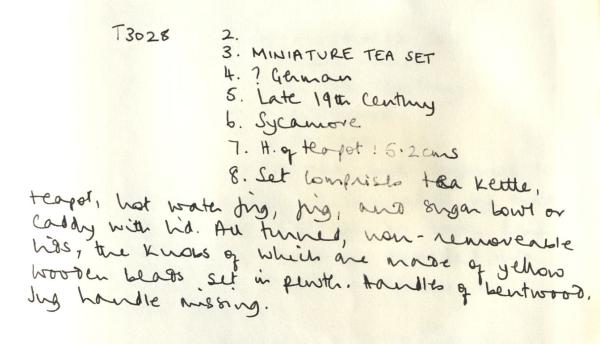 T3028 2.
3. MINIATURE TEA SET
4. ? German
5. Late 19th Century
6. Sycamore
7. H. of teapot : 5.2cms
8. Set comprises tea kettle,
teapot, hot water jug, jug, and sugar bowl or
caddy with lid. All turned, non-removeable
lids, the knobs of which are made of yellow
wooden beads set in . Handles of bentwood.
Jug handle missing.